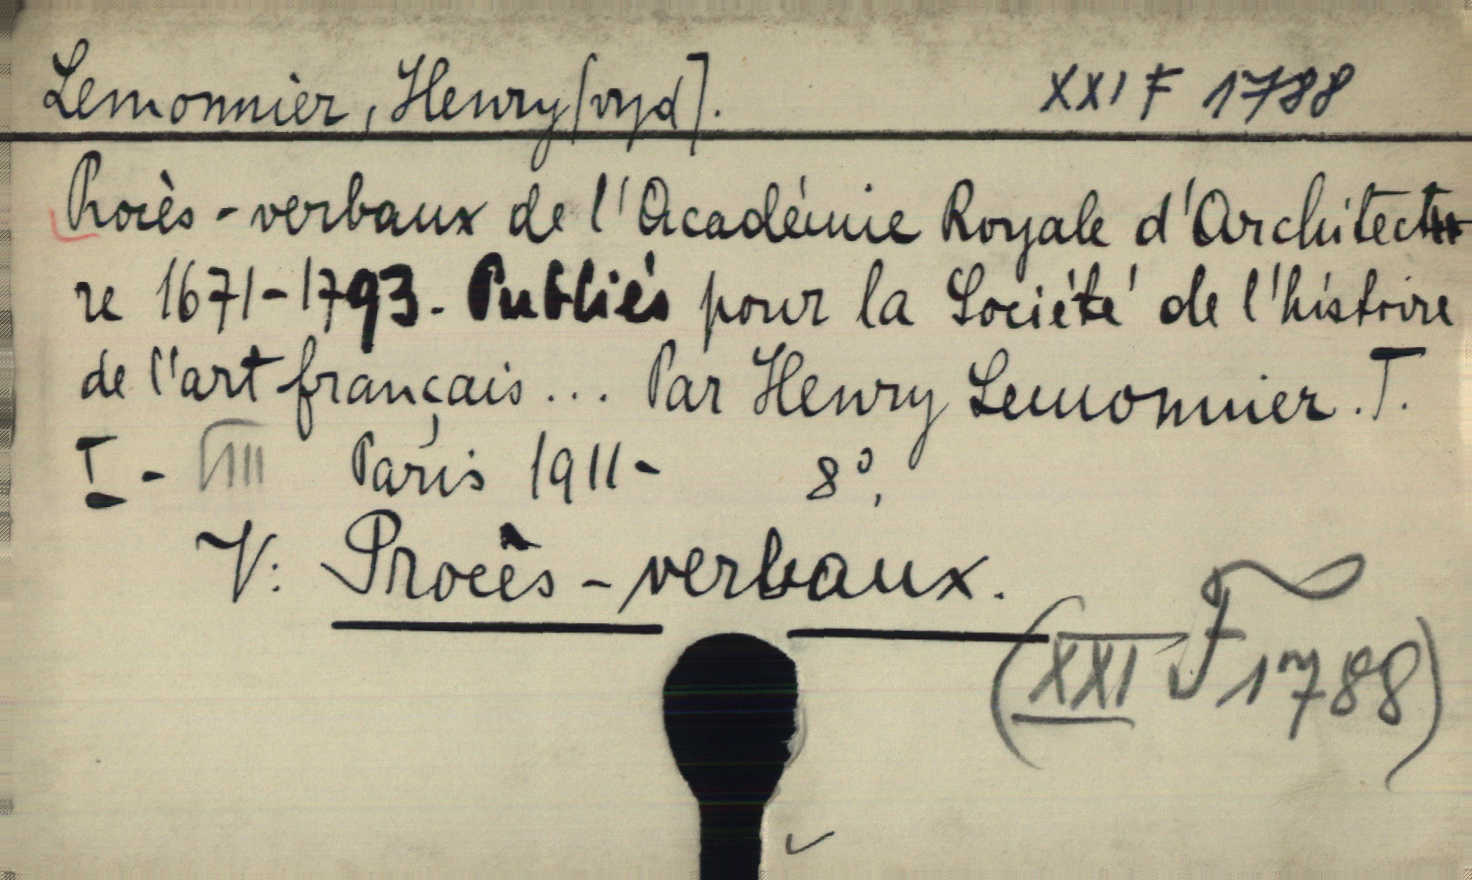 Lemonnier, Henry [vyd]. XXI F 1788
Procès-verbaux de l'Académie Royale d'Architectu
re 1671-1793. Publiés pour la Société de l'histoire
de l'art français... Par Henry Lemonnier. T.
I - VIII Paris 1911- 8°,
V: Procès-verbaux.
(XXI F 1788)